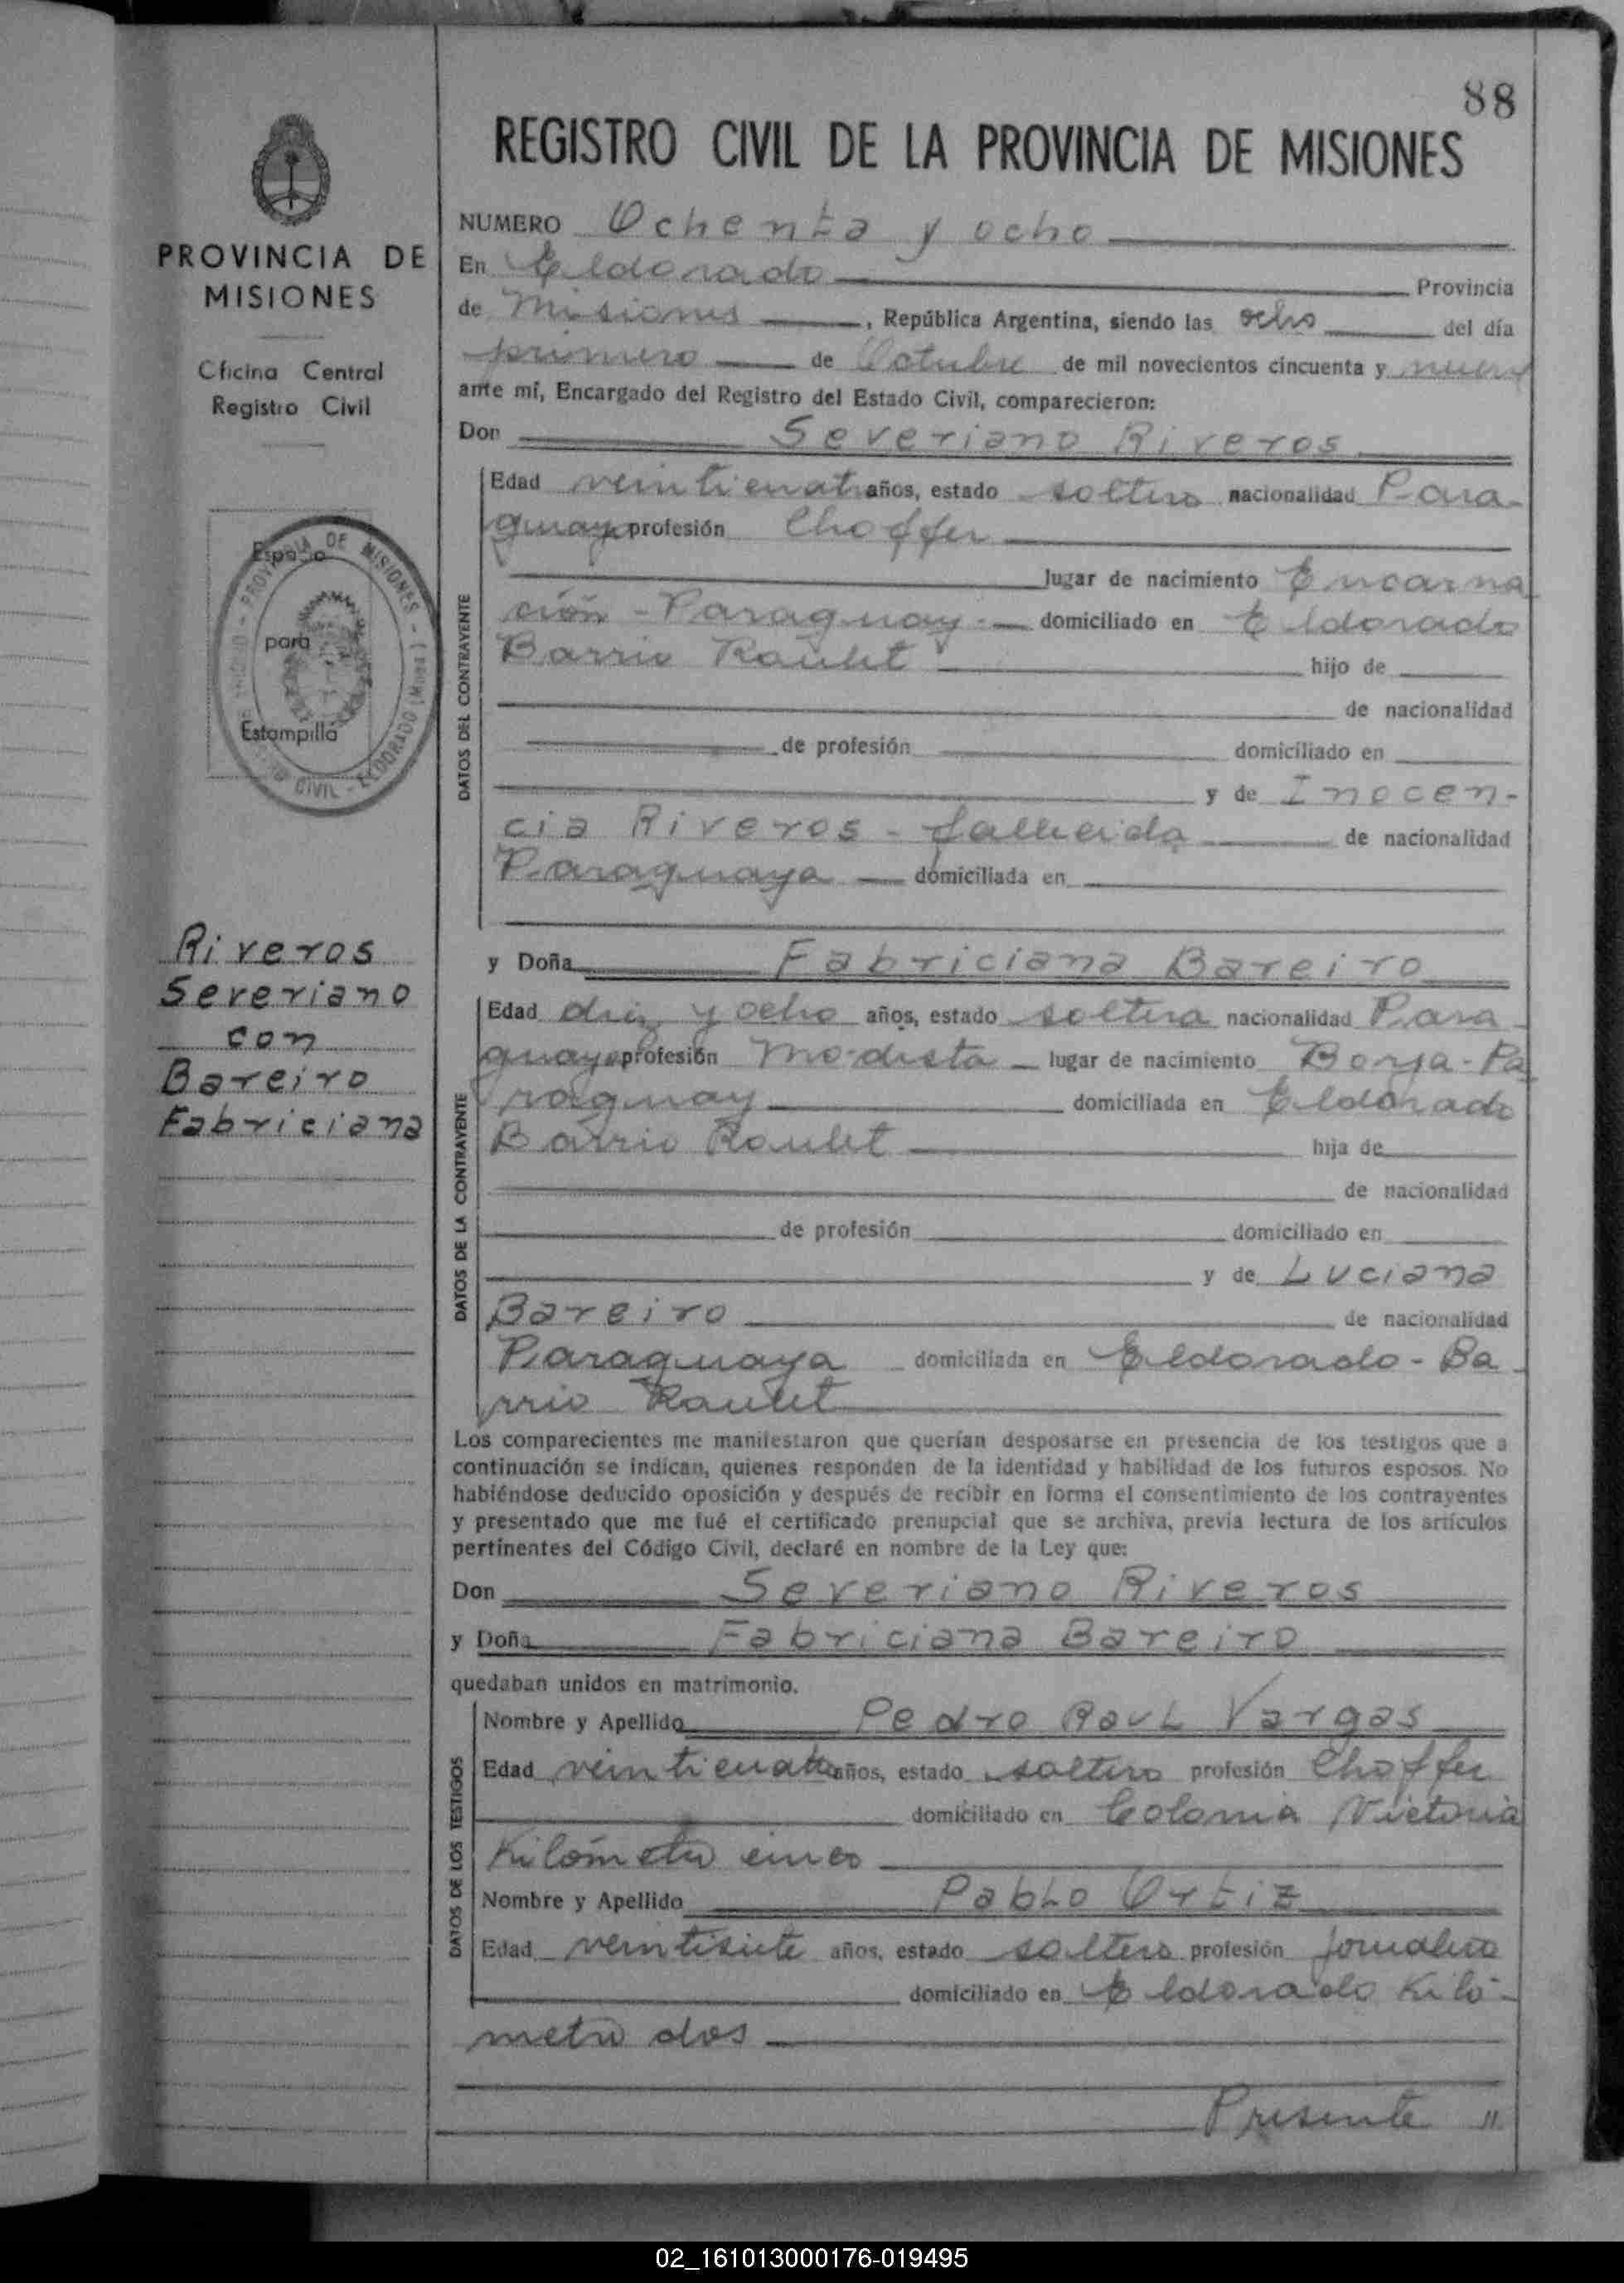 88
REGISTRO CIVIL DE LA PROVINCIA DE MISIONES
PROVINCIA DE
MISIONES
Oficina Central
Registro Civil
Espacio
para
Estampilla
PROVINCIA DE MISIONES
CIVIL - ELDORADO
Riveros
Severiano
con
Bareiro
Fabriciana
NUMERO Ochenta y ocho
En Eldorado Provincia
de Misiones, República Argentina, siendo las ocho del día
primero de Octubre de mil novecientos cincuenta y nueve
ante mí, Encargado del Registro del Estado Civil, comparecieron:
Don Severiano Riveros
DATOS DEL CONTRAYENTE
Edad veinticuatro años, estado soltero nacionalidad Para-
guaya profesión Choffer
lugar de nacimiento Encarna
ción - Paraguay.- domiciliado en Eldorado
Barrio Roulet hijo de
de nacionalidad
de profesión domiciliado en
y de Inocen-
cia Riveros - fallecida de nacionalidad
Paraguaya domiciliada en
y Doña Fabriciana Bareiro
DATOS DE LA CONTRAYENTE
Edad diez y ocho años, estado soltera nacionalidad Para-
guaya profesión Modista lugar de nacimiento Borja - Pa
raguay domiciliada en Eldorado
Barrio Roulet hija de
de nacionalidad
de profesión domiciliado en
y de Luciana
Bareiro de nacionalidad
Paraguaya domiciliada en Eldorado - Ba
rrio Roulet
Los comparecientes me manifestaron que querían desposarse en presencia de los testigos que a
continuación se indican, quienes responden de la identidad y habilidad de los futuros esposos. No
habiéndose deducido oposición y después de recibir en forma el consentimiento de los contrayentes
y presentado que me fué el certificado prenupcial que se archiva, previa lectura de los artículos
pertinentes del Código Civil, declaré en nombre de la Ley que:
Don Severiano Riveros
y Doña Fabriciana Bareiro
quedaban unidos en matrimonio.
DATOS DE LOS TESTIGOS
Nombre y Apellido Pedro Raul Vargas
Edad veinticuatro años, estado soltero profesión Choffer
domiciliado en Colonia Victoria
Kilómetro cinco
Nombre y Apellido Pablo Ortiz
Edad veintisiete años, estado soltero profesión Jornalero
domiciliado en Eldorado Kiló-
metro dos
Presente //
02_161013000176-019495